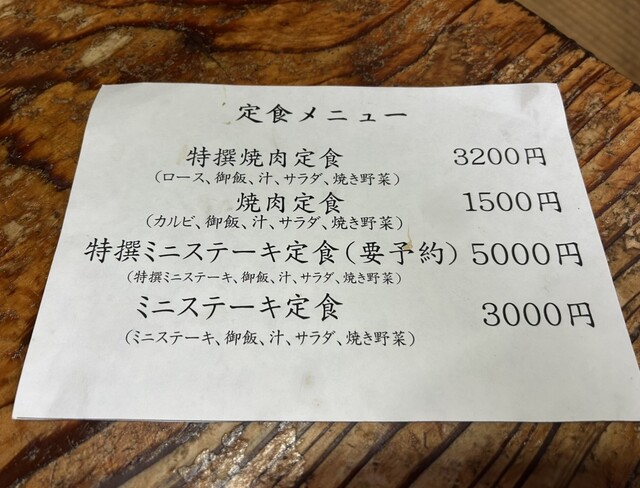 定食メニュー
特撰焼肉定食 3200円
(ロース、御飯、汁、サラダ、焼き野菜)
焼肉定食 1500円
(カルビ、御飯、汁、サラダ、焼き野菜)
特撰ミニステーキ定食(要予約) 5000円
(特撰ミニステーキ、御飯、汁、サラダ、焼き野菜)
ミニステーキ定食 3000円
(ミニステーキ、御飯、汁、サラダ、焼き野菜)